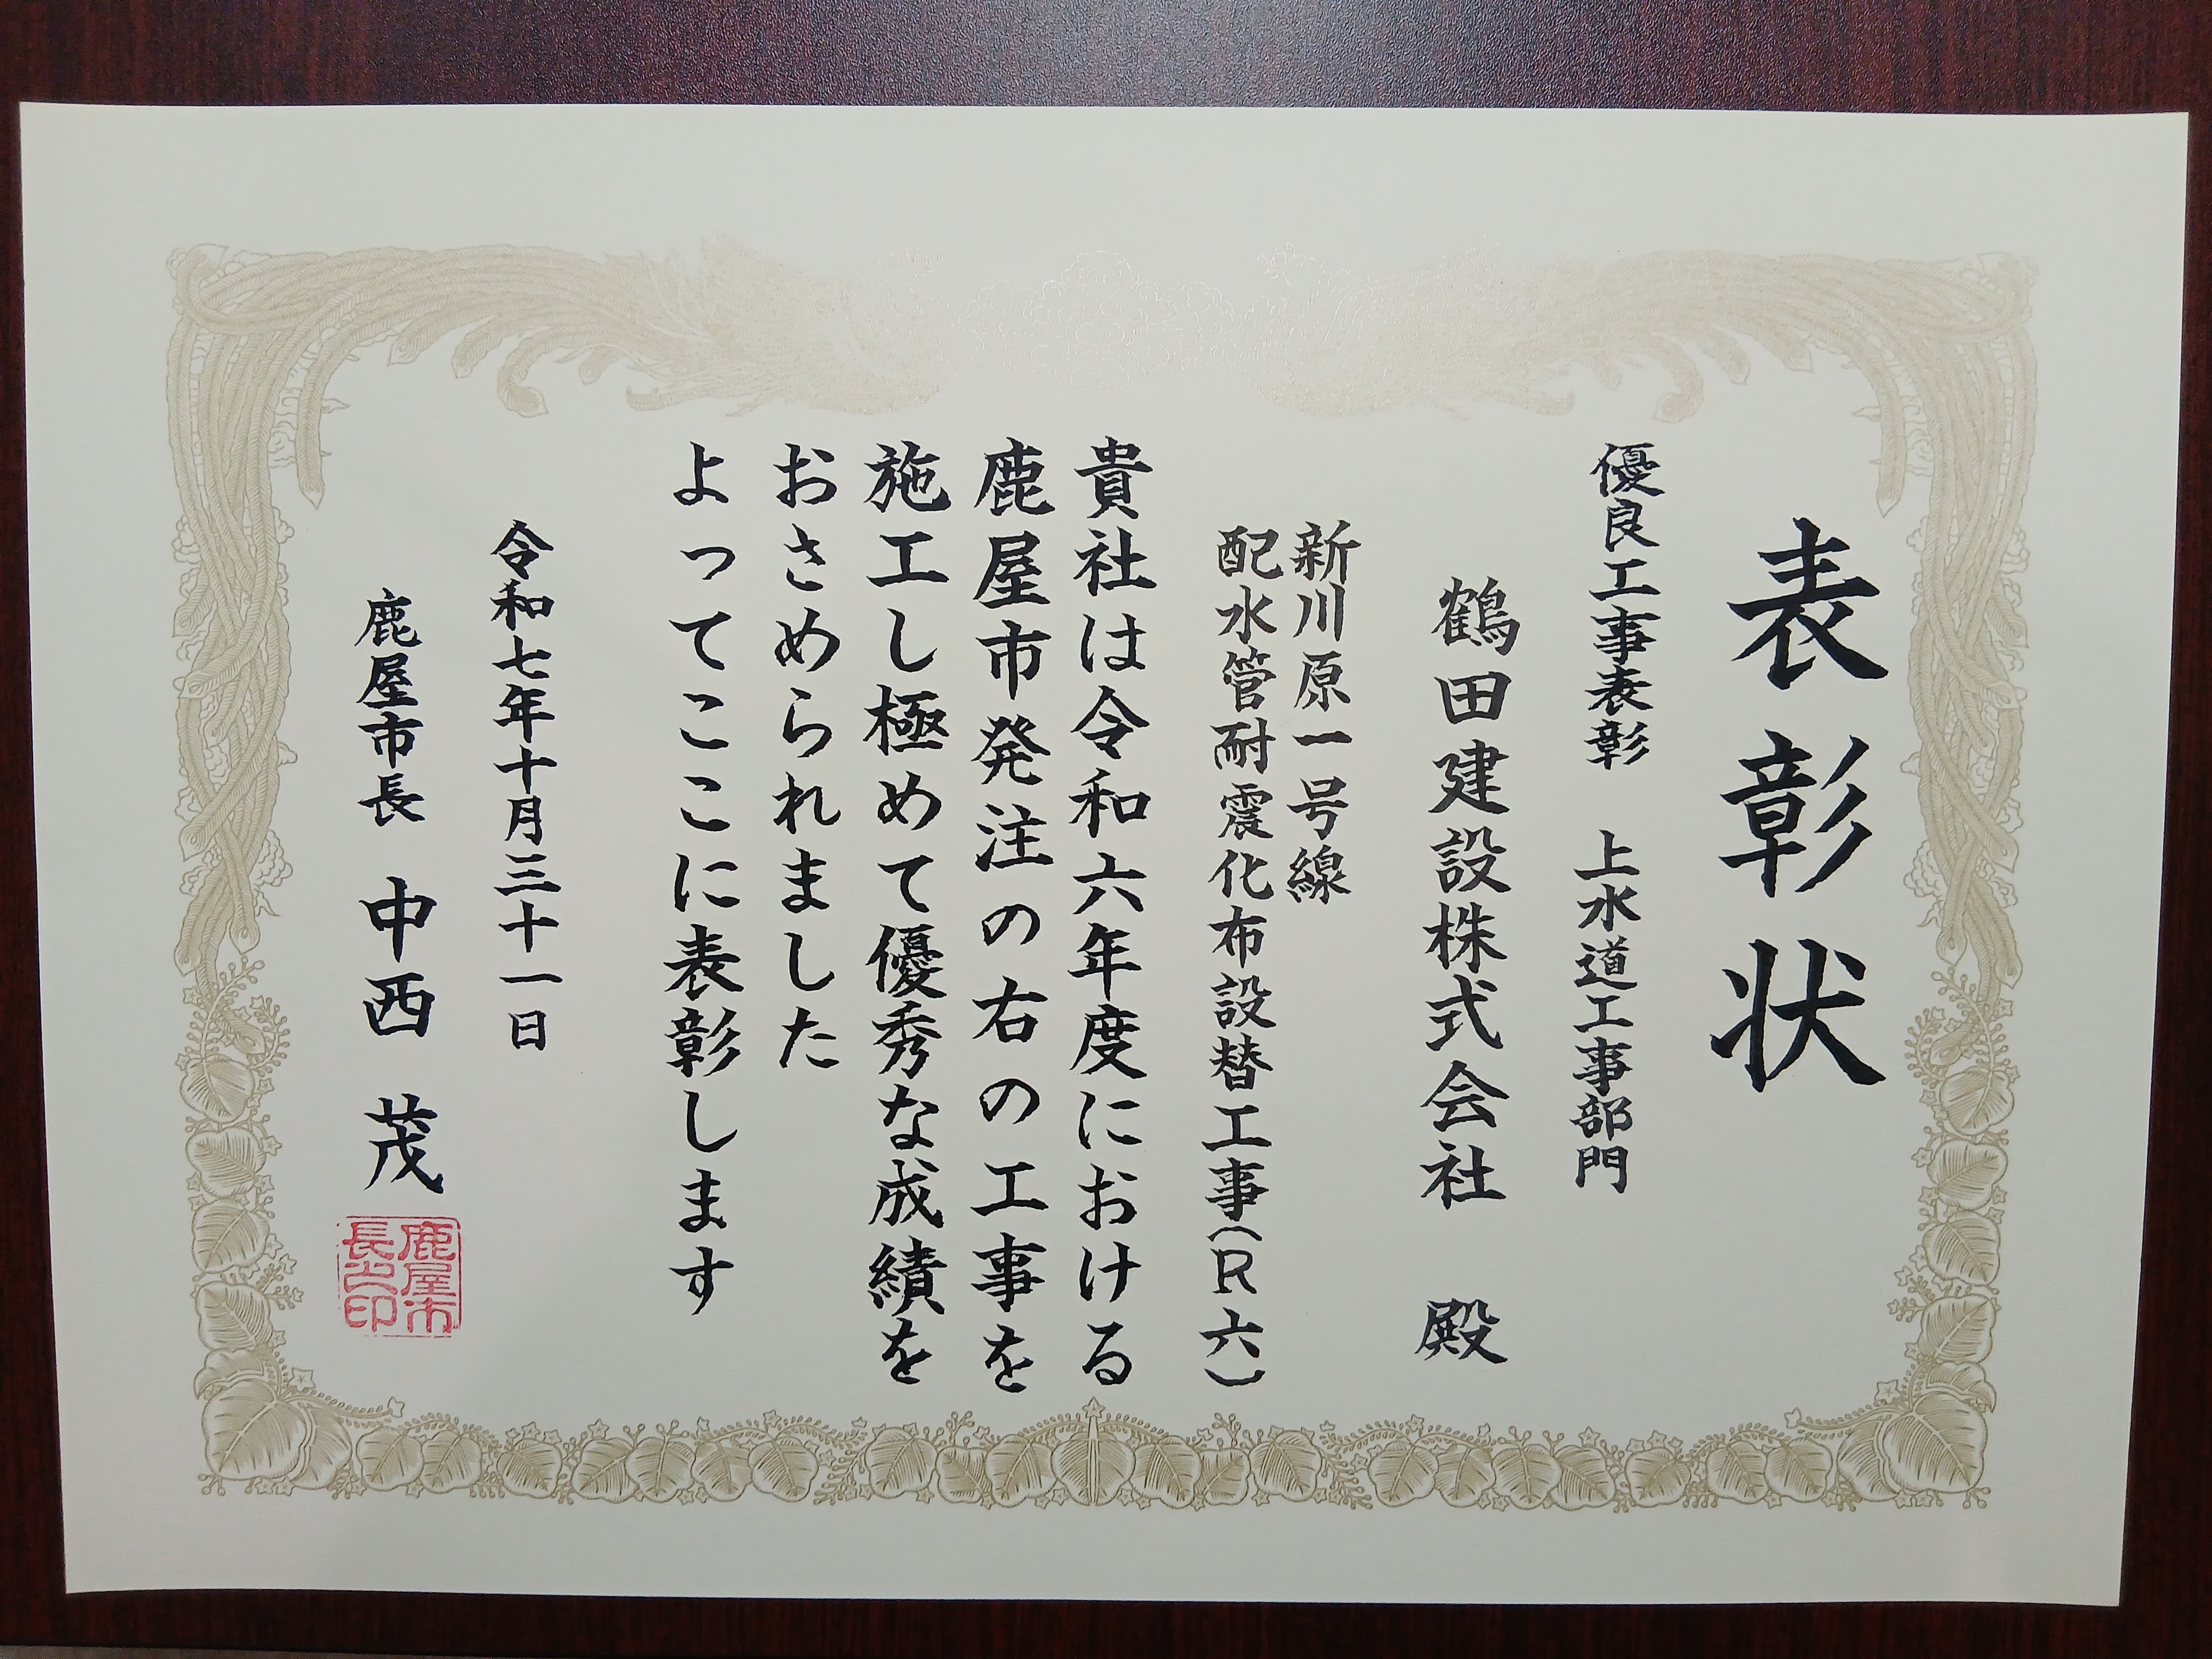 表彰状
優良工事表彰　上水道工事部門
鶴田建設株式会社　殿
新川原一号線
配水管耐震化布設替工事(R六)
貴社は令和六年度における
鹿屋市発注の右の工事を
施工し極めて優秀な成績を
おさめられました
よってここに表彰します
令和七年十月三十一日
鹿屋市長　中西　茂
鹿屋市
長之印